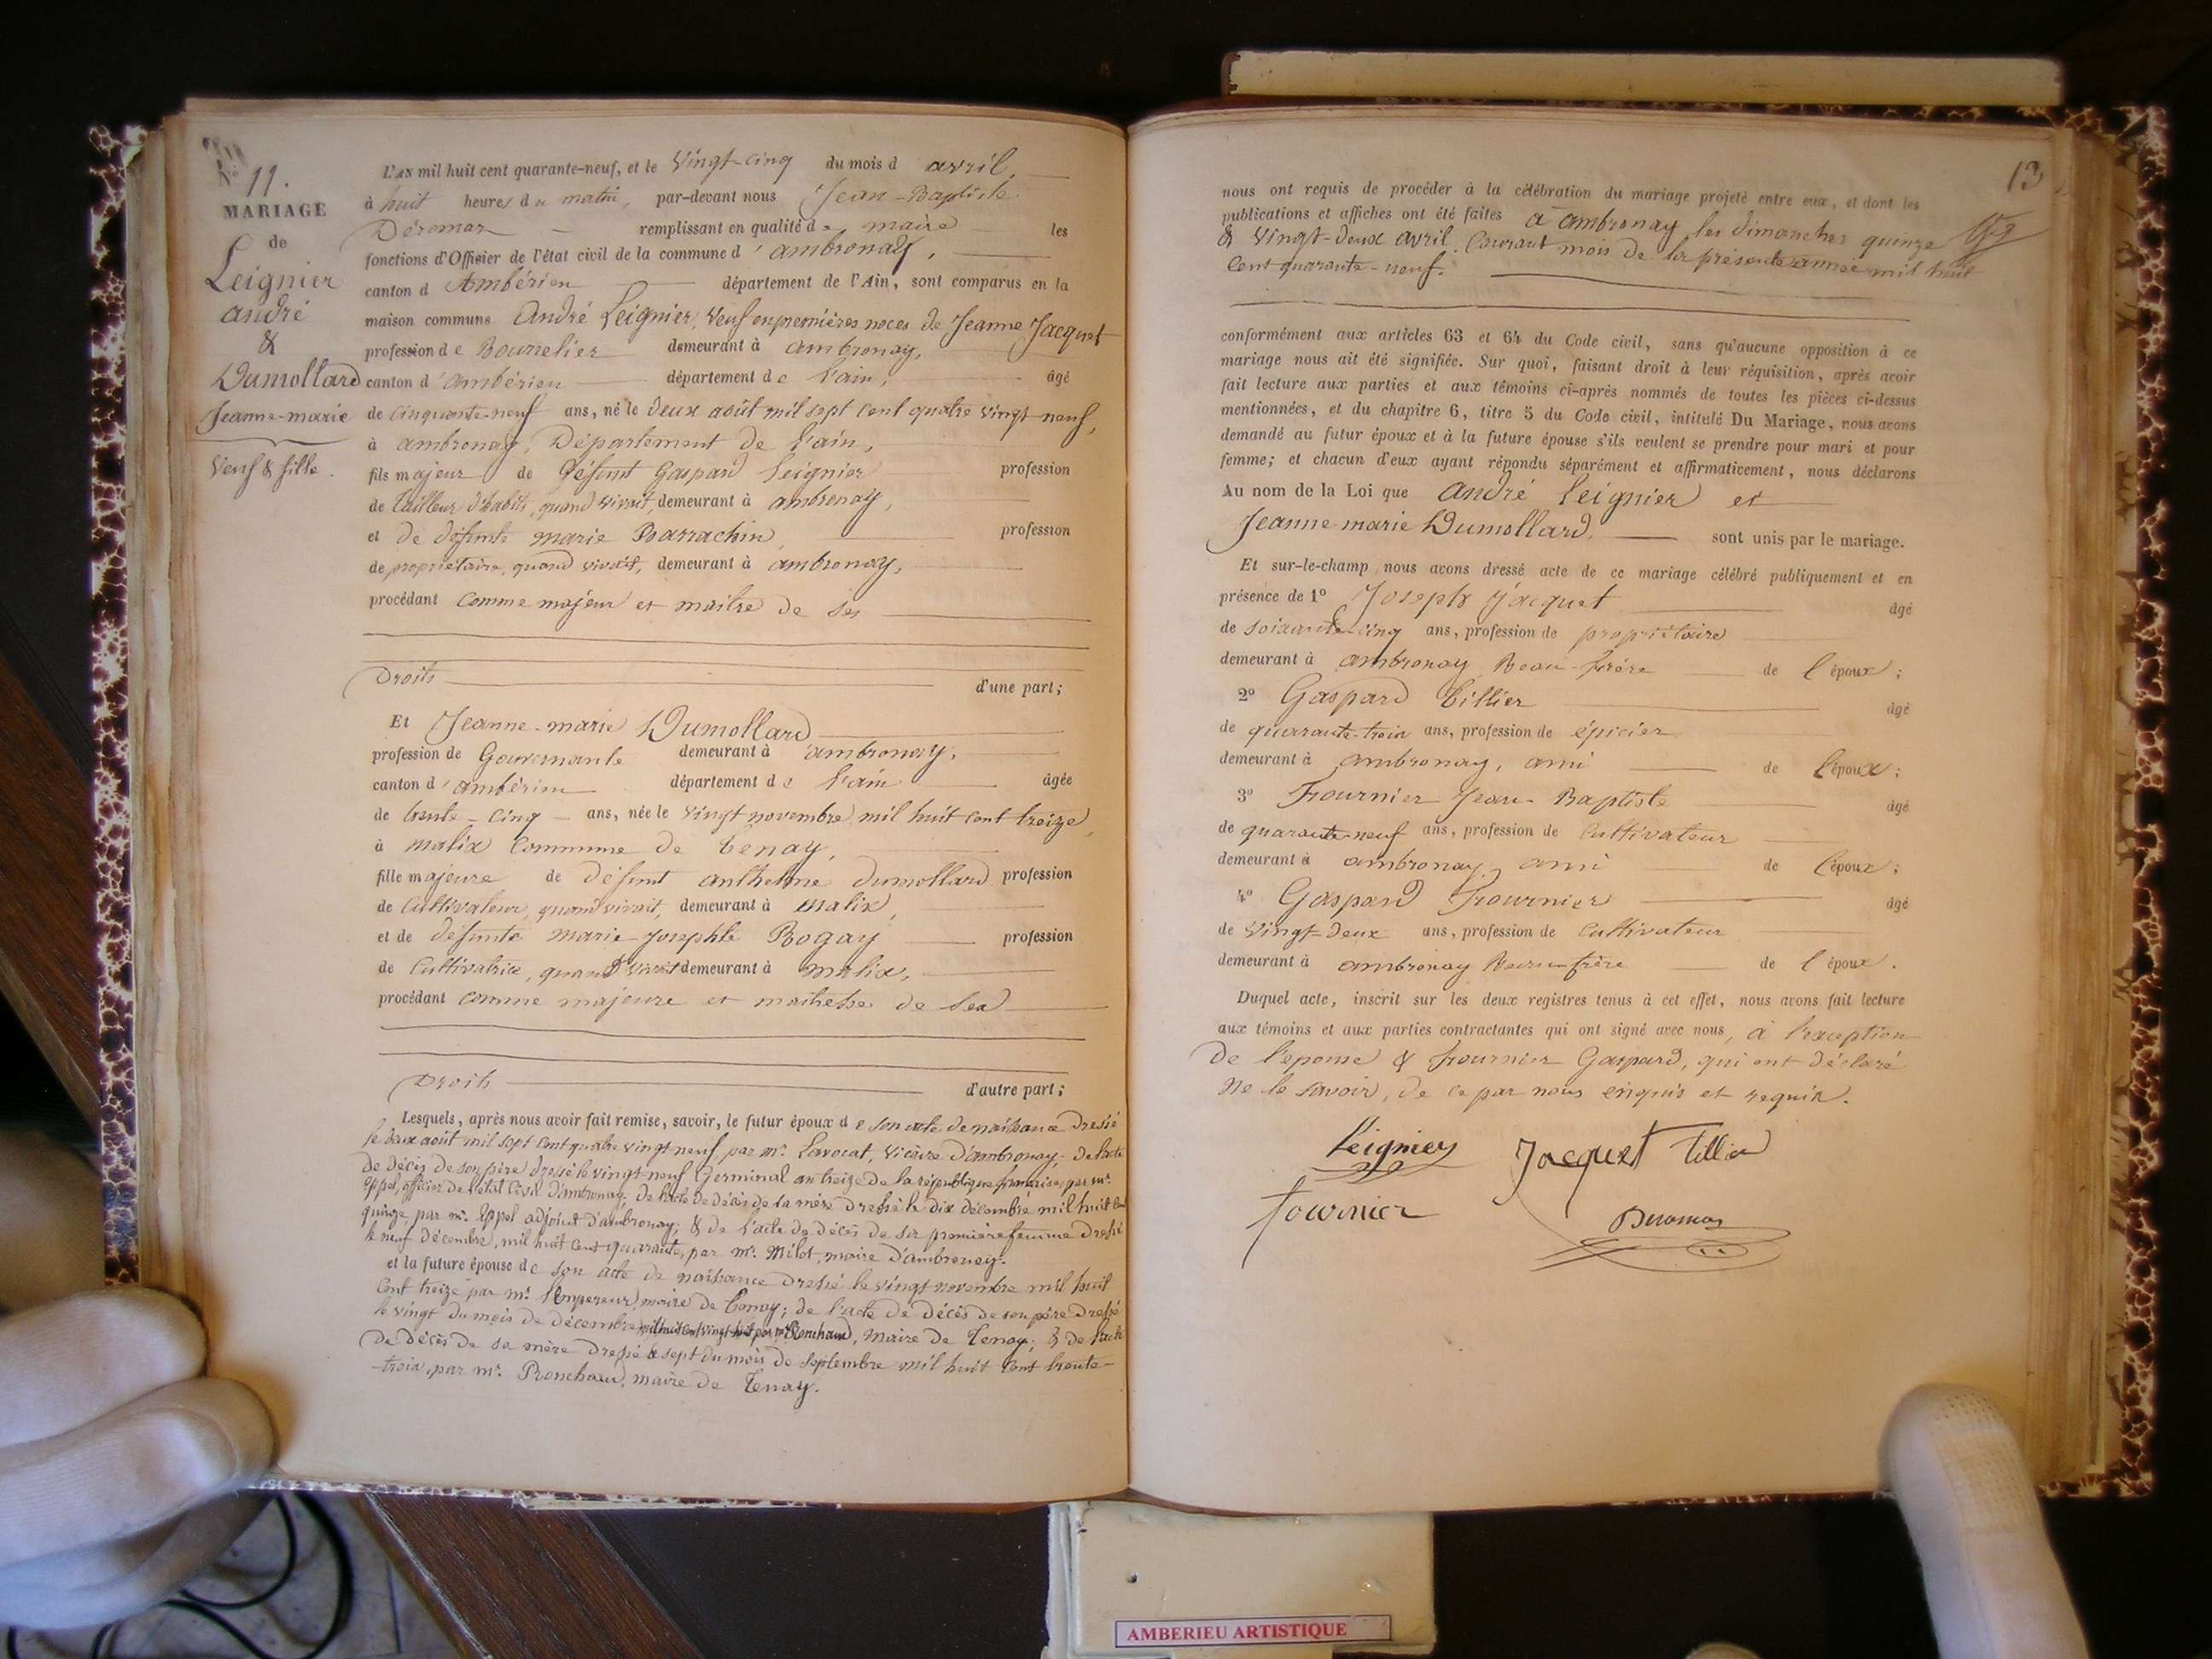 N.° 11.
MARIAGE
de
Leignier
andré
&
Dumollard
Jeanne-marie
Veuf & fille.
L'AN mil huit cent quarante-neuf, et le Vingt-cinq du mois d avril,
à huit heures du matin, par-devant nous Jean-Baptiste
Déromas remplissant en qualité de maire les
fonctions d'Officier de l'état civil de la commune d'ambronay,
canton d Ambérieu département de l'Ain, sont comparus en la
maison commune André Leignier, Veuf en premières noces de Jeanne Jacquet
profession de Bourrelier demeurant à ambronay,
canton d'ambérieu département de l'ain, âgé
de cinquante-neuf ans, né le deux août mil sept cent quatre vingt neuf,
à ambronay, Département de l'ain,
fils majeur de défunt Gaspard Leignier profession
de tailleur d'habits, quand vivait, demeurant à ambronay,
et de défunte marie Barrachin, profession
de propriétaire, quand vivait, demeurant à ambronay,
procédant comme majeur et maitre de ses
Droits d'une part;
Et Jeanne-marie Dumollard
profession de Gouvernante demeurant à ambronay,
canton d'ambérieu département de l'ain âgée
de trente-cinq ans, née le vingt novembre mil huit cent treize,
à malix Commune de tenay,
fille majeure de défunt anthelme dumollard profession
de Cultivateur, quand vivait, demeurant à malix,
et de défunte marie josephte Rogay profession
de Cultivatrice, quand vivait demeurant à malix,
procédant comme majeure et maitresse de ses
Droits d'autre part;
Lesquels, après nous avoir fait remise, savoir, le futur époux de son acte de naissance dressé
le deux août mil sept cent quatre vingt neuf, par mr. Lavocat, Vicaire d'ambronay; de l'acte
de décès de son père dressé le vingt-neuf Germinal an treize de la république française, par mr.
Eppel, officier de l'état civil d'ambronay; de l'acte de décès de sa mère dressé le dix décembre mil huit cent
quinze par mr. Eppel adjoint d'ambronay; & de l'acte de décès de sa première femme dressé
le neuf décembre, mil huit cent quarante, par mr. Milot, maire d'ambronay.
et la future épouse de son acte de naissance dressé le vingt novembre mil huit
cent treize par mr. l'Empereur, maire de tenay; de l'acte de décès de son père dressé
le vingt du mois de décembre mil huit cent vingt-huit par mr. Bronchaud, Maire de Tenay; & de l'acte
de décès de sa mère dressé le sept du mois de septembre mil huit cent trente-
-trois, par mr. Bronchaud, maire de tenay.
13
nous ont requis de procéder à la célébration du mariage projeté entre eux, et dont les
publications et affiches ont été faites à ambronay, les dimanches quinze
& vingt-deux avril, Courant mois de la présente année mil huit
cent quarante-neuf.
conformément aux articles 63 et 64 du Code civil, sans qu'aucune opposition à ce
mariage nous ait été signifiée. Sur quoi, faisant droit à leur réquisition, après avoir
fait lecture aux parties et aux témoins ci-après nommés de toutes les pièces ci-dessus
mentionnées, et du chapitre 6, titre 5 du Code civil, intitulé Du Mariage, nous avons
demandé au futur époux et à la future épouse s'ils veulent se prendre pour mari et pour
femme; et chacun d'eux ayant répondu séparément et affirmativement, nous déclarons
Au nom de la Loi que andré Leignier et
Jeanne-marie Dumollard, sont unis par le mariage.
Et sur-le-champ nous avons dressé acte de ce mariage célébré publiquement et en
présence de 1° Joseph Jacquet âgé
de soixante-cinq ans, profession de propriétaire
demeurant à ambronay Beau-frère de l'époux;
2° Gaspard tillier âgé
de quarante-trois ans, profession de épicier
demeurant à ambronay, ami de l'époux;
3° Fournier Jean-Baptiste âgé
de quarante-neuf ans, profession de Cultivateur
demeurant à ambronay, ami de l'époux;
4° Gaspard Fournier âgé
de vingt-deux ans, profession de Cultivateur
demeurant à ambronay Beau-frère de l'époux.
Duquel acte, inscrit sur les deux registres tenus à cet effet, nous avons fait lecture
aux témoins et aux parties contractantes qui ont signé avec nous, à l'exception
de l'épouse & fournier Gaspard, qui ont déclaré
ne le savoir, de ce par nous enquis et requis.
Leignier Jacquet tillier
fournier
Deromas
AMBERIEU ARTISTIQUE